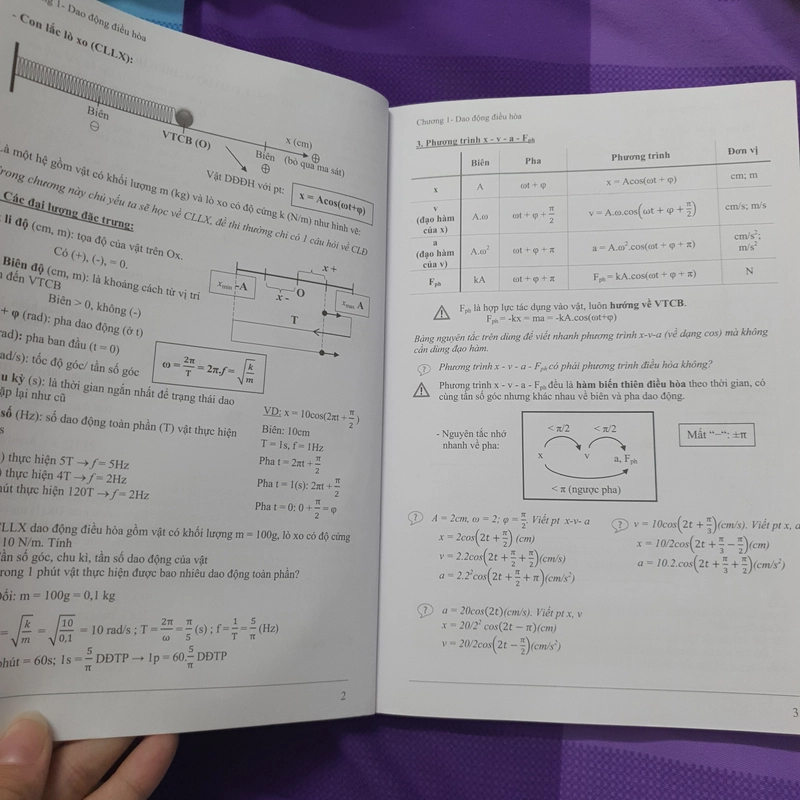 g 1- Dao động điều hòa
- Con lắc lò xo (CLLX):
Biên
⊖
VTCB (O)
x (cm)
Biên
⊕
(bỏ qua ma sát)
⊕
Vật DĐĐH với pt:
x = Acos(ωt+φ)
Là một hệ gồm vật có khối lượng m (kg) và lò xo có độ cứng k (N/m) như hình vẽ:
Trong chương này chủ yếu ta sẽ học về CLLX, đề thi thường chỉ có 1 câu hỏi về CLĐ
Các đại lượng đặc trưng:
li độ (cm, m): tọa độ của vật trên Ox.
Có (+), (-), = 0.
Biên độ (cm, m): là khoảng cách từ vị trí
đến VTCB
Biên > 0, không (-)
+ φ (rad): pha dao động (ở t)
rad): pha ban đầu (t = 0)
rad/s): tốc độ góc/ tần số góc
ω = 2π/T = 2π.f = √(k/m)
xmin -A
x -
O
x+
xmax A
T
u kỳ (s): là thời gian ngắn nhất để trạng thái dao
ặp lại như cũ
số (Hz): số dao động toàn phần (T) vật thực hiện
s
) thực hiện 5T → f = 5Hz
) thực hiện 4T → f = 2Hz
hút thực hiện 120T → f = 2Hz
VD: x = 10cos(2πt + π/2)
Biên: 10cm
T = 1s, f = 1Hz
Pha t = 2πt + π/2
Pha t = 1(s): 2πt + π/2
Pha t = 0: 0 + π/2 = φ
CLLX dao động điều hòa gồm vật có khối lượng m = 100g, lò xo có độ cứng
10 N/m. Tính
Tần số góc, chu kì, tần số dao động của vật
Trong 1 phút vật thực hiện được bao nhiêu dao động toàn phần?
Đổi: m = 100g = 0,1 kg
= √(k/m) = √(10/0,1) = 10 rad/s ; T = 2π/ω = π/5 (s) ; f = 1/T = 5/π (Hz)
phút = 60s; 1s = 5/π DĐTP → 1p = 60.5/π DĐTP
2
Chương 1- Dao động điều hòa
3. Phương trình x - v - a - Fph
Biên Pha Phương trình Đơn vị
x A ωt + φ x = Acos(ωt + φ) cm; m
v (đạo hàm của x) A.ω ωt + φ + π/2 v = A.ω.cos(ωt + φ + π/2) cm/s; m/s
a (đạo hàm của v) A.ω² ωt + φ + π a = A.ω².cos(ωt + φ + π) cm/s²; m/s²
Fph kA ωt + φ + π Fph = kA.cos(ωt + φ + π) N
Fph là hợp lực tác dụng vào vật, luôn hướng về VTCB.
Fph = -kx = ma = -kA.cos(ωt+φ)
Bảng nguyên tắc trên dùng để viết nhanh phương trình x-v-a (về dạng cos) mà không
cần dùng đạo hàm.
? Phương trình x - v - a - Fph có phải phương trình điều hòa không?
Phương trình x - v - a - Fph đều là hàm biến thiên điều hòa theo thời gian, có
cùng tần số góc nhưng khác nhau về biên và pha dao động.
- Nguyên tắc nhớ
nhanh về pha:
< π/2 < π/2
x v a, Fph
< π (ngược pha)
Mất “–“: ±π
? A = 2cm, ω = 2; φ = π/2. Viết pt x-v- a
x = 2cos(2t + π/2) (cm)
v = 2.2cos(2t + π/2 + π/2)(cm/s)
a = 2.2²cos(2t + π/2 + π)(cm/s²)
? v = 10cos(2t + π/3)(cm/s). Viết pt x, a
x = 10/2cos(2t + π/3 − π/2)(cm)
a = 10.2.cos(2t + π/3 + π/2)(cm/s²)
? a = 20cos(2t)(cm/s). Viết pt x, v
x = 20/2² cos(2t − π)(cm)
v = 20/2cos(2t − π/2)(cm/s²)
3